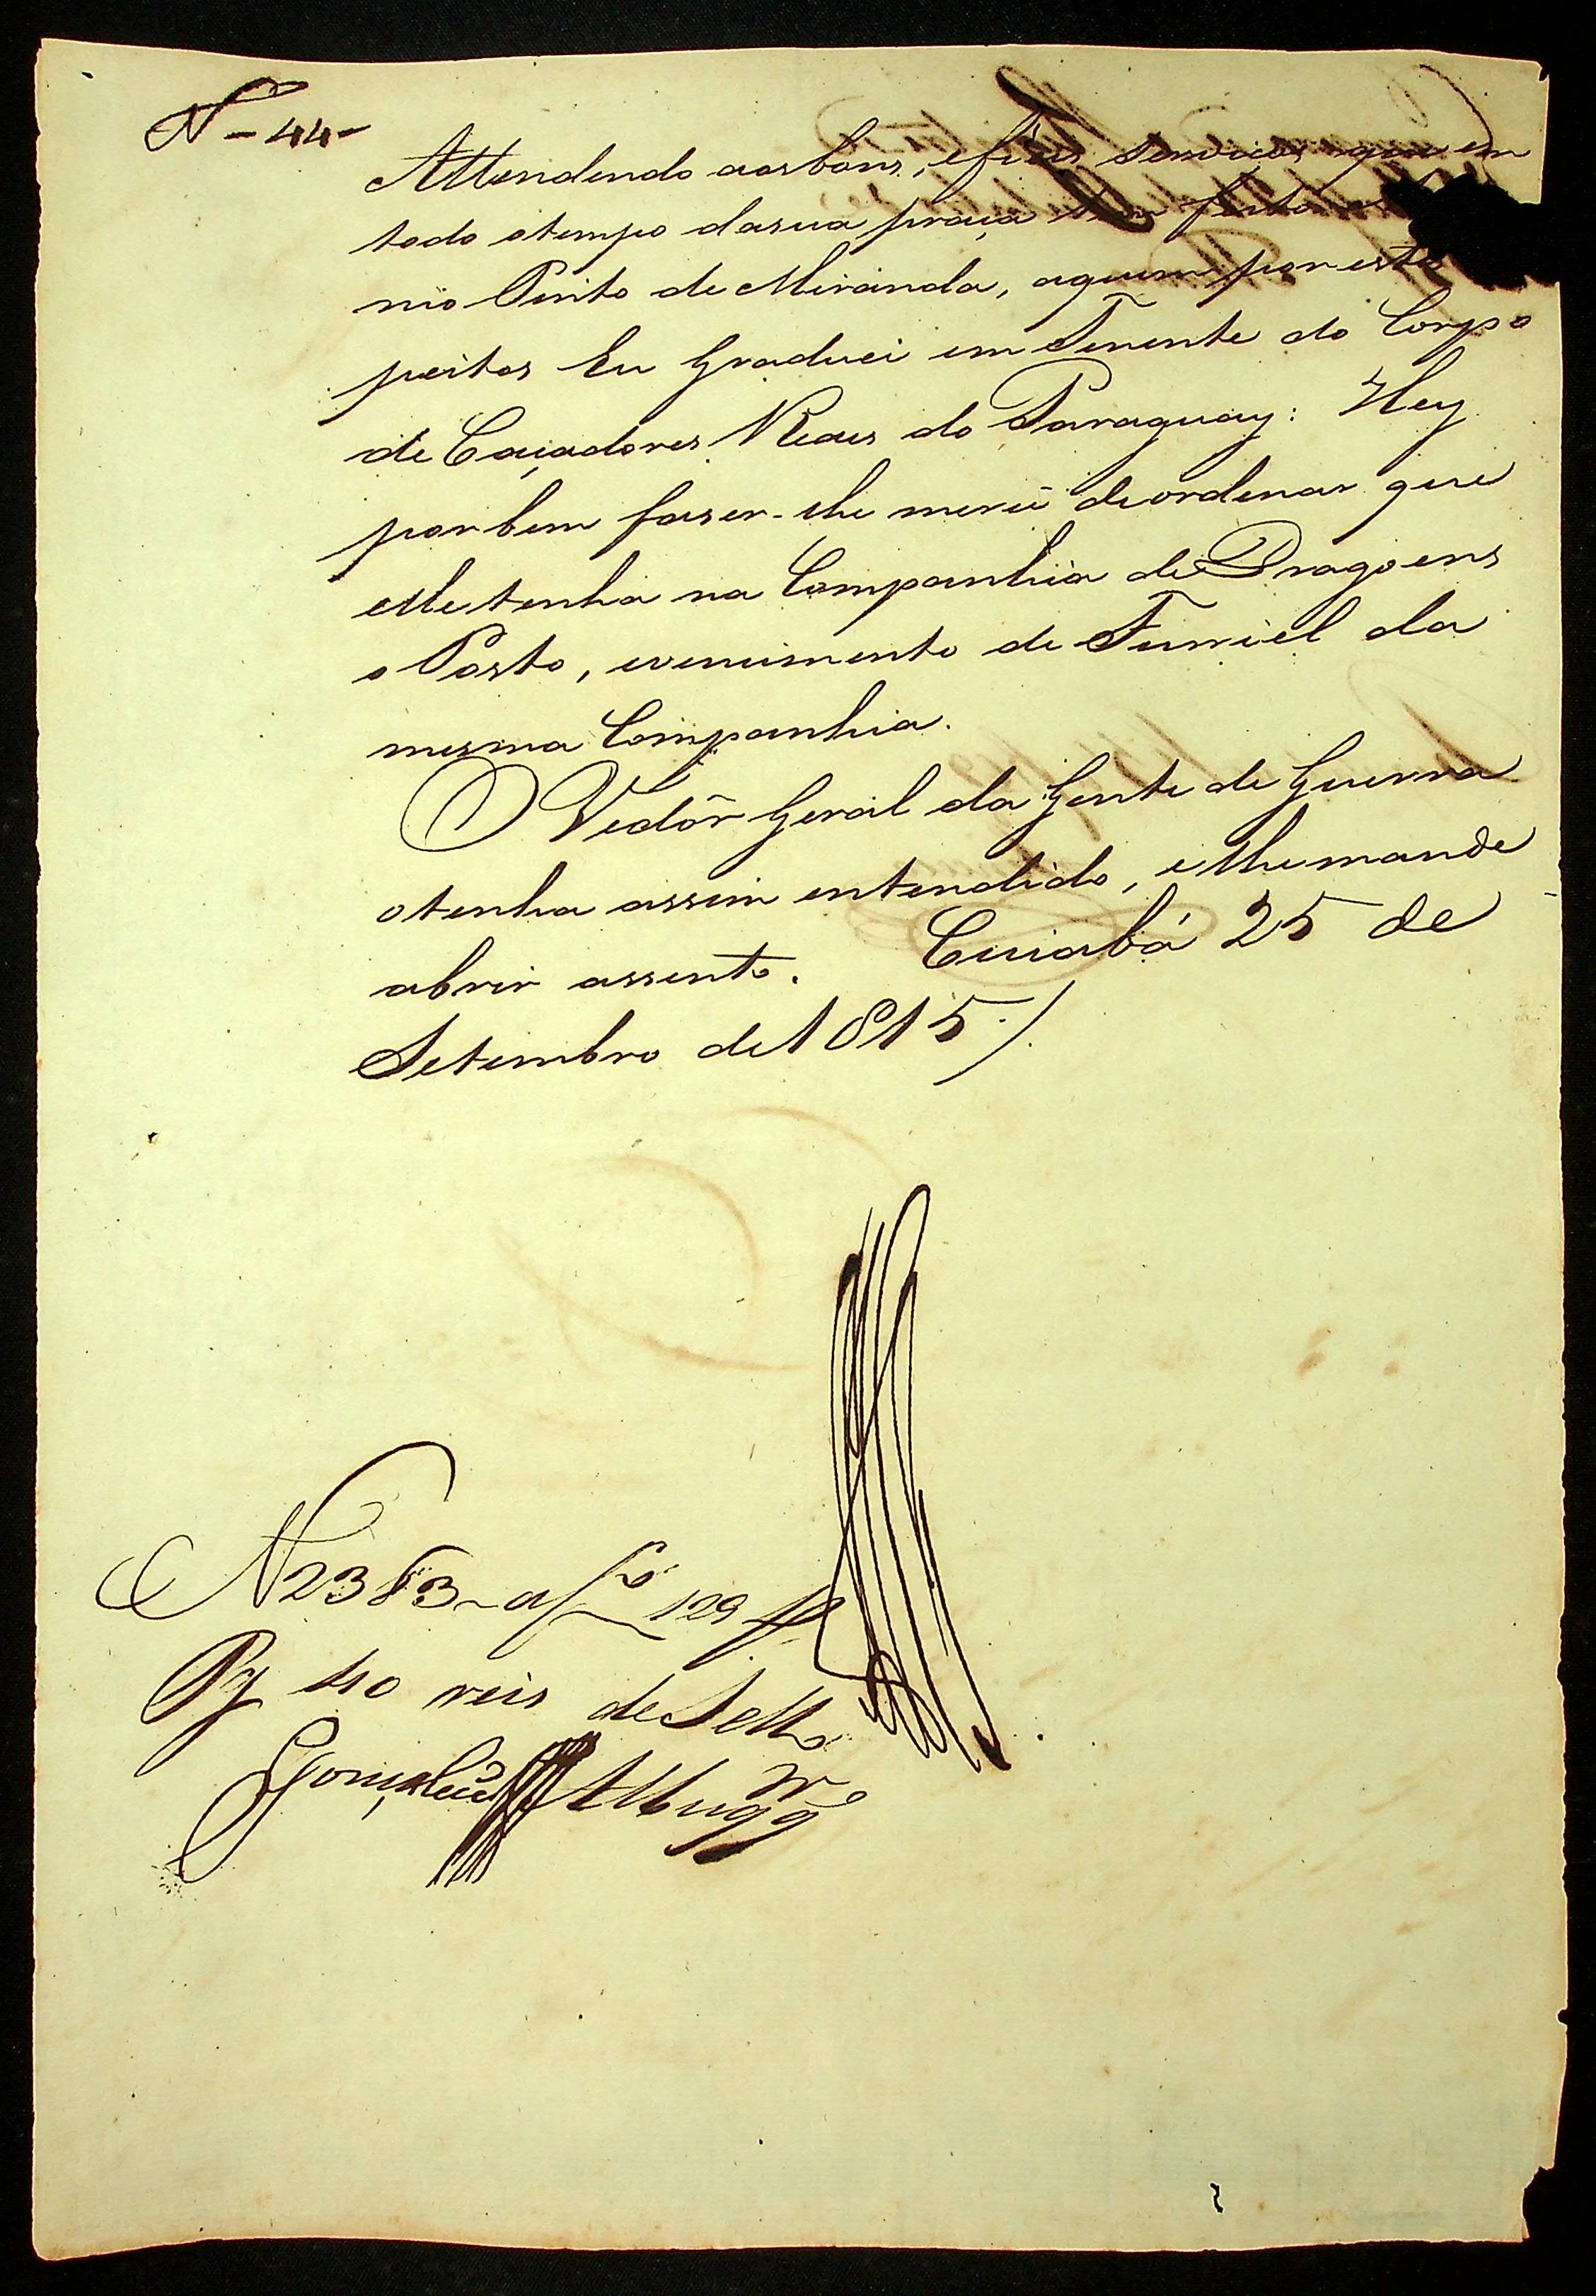 N - 44 -
Attendendo aos bons, e fieis servicos que em
todo o tempo da sua praça tem feito
nio Pinto de Miranda, a quem por estes
peitos Eu Graduei em Tenente do Corpo
de Caçadores Reaes do Paraguay: Hey
por bem faser-lhe mercê de ordenar que
elle tenha na Companhia de Dragoens
o Posto, e vencimento de Furriel da
mesma Companhia.
O Vedôr Geral da Gente de Guerra
o tenha assim entendido, e lhe mande
abrir assento. Cuiabá 25 de
Setembro de 1815 /.
N 2383 - a f 129
Pg 40 reis de Sello